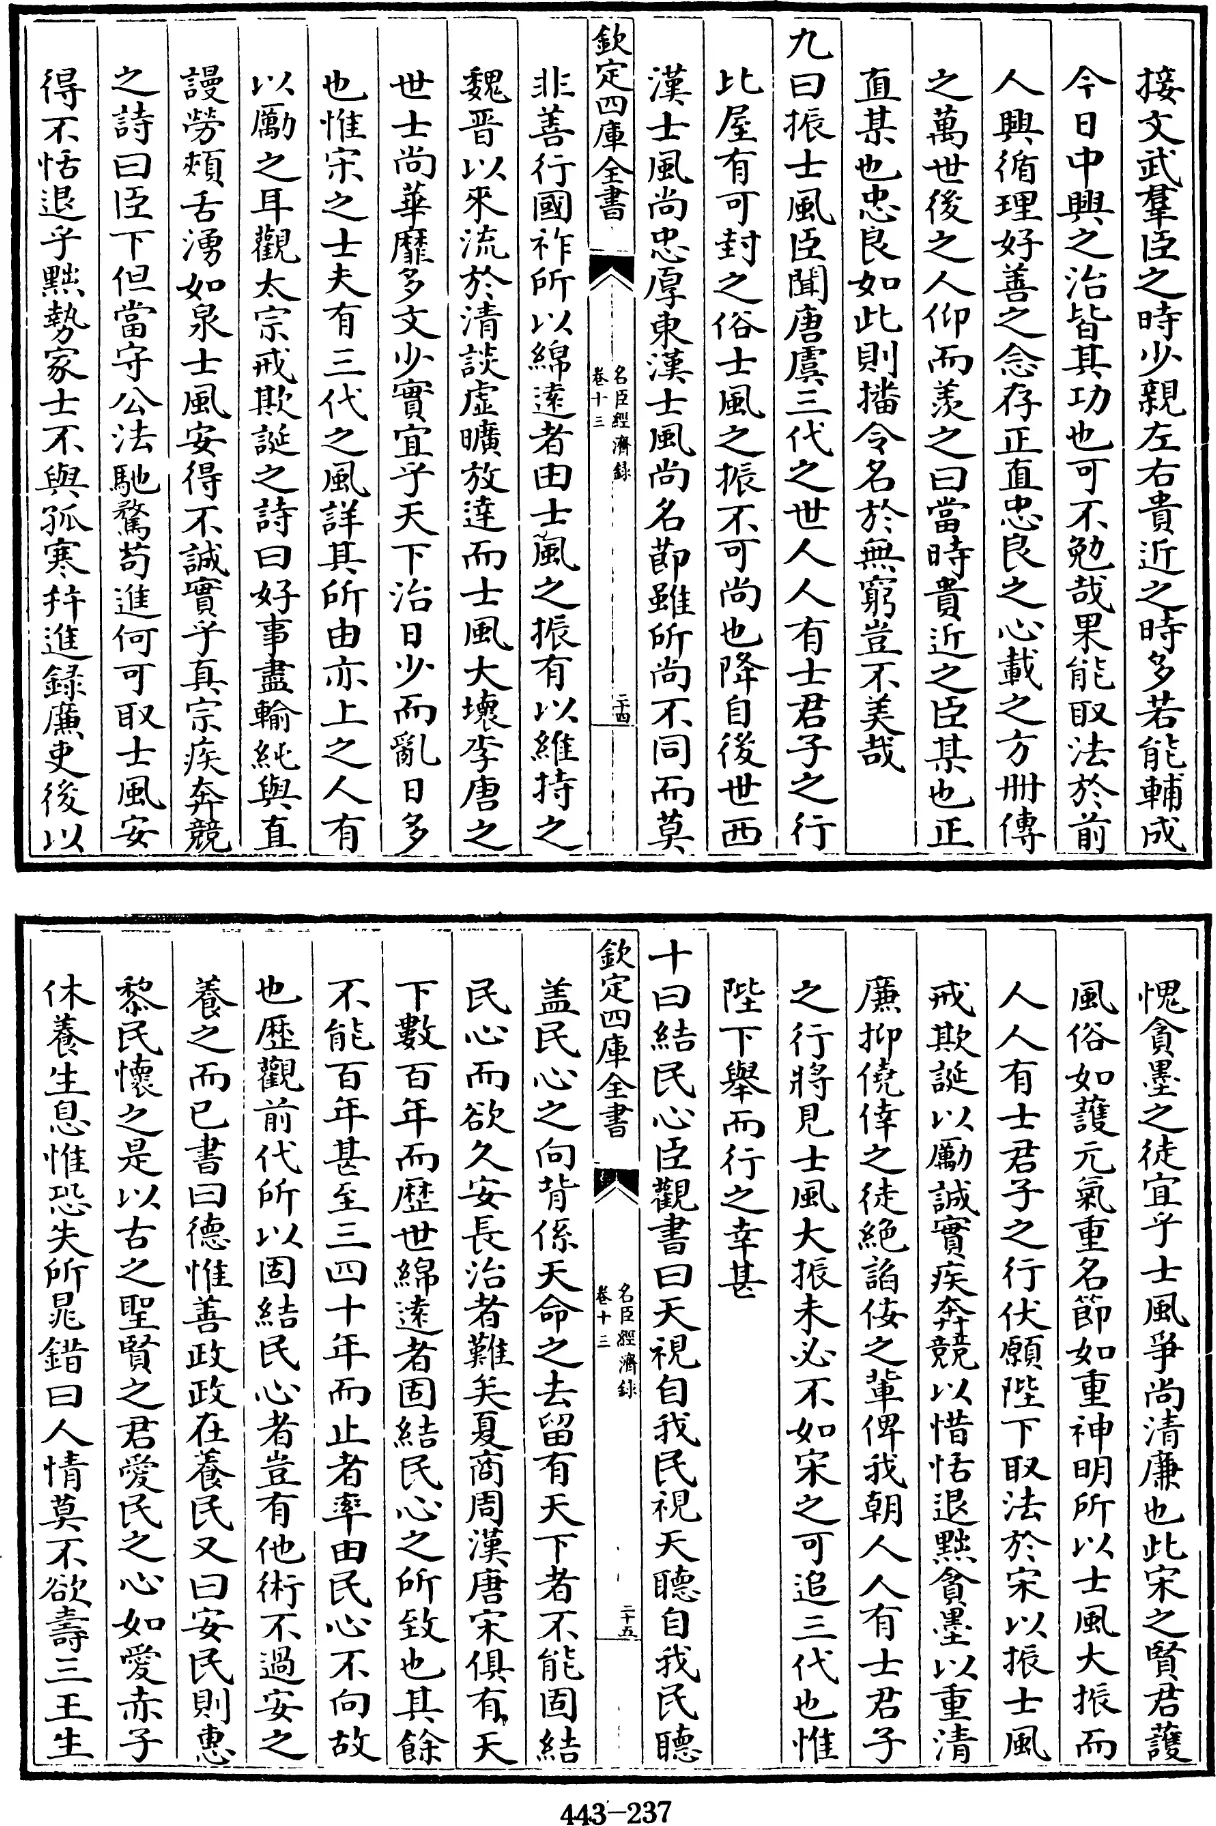 接文武羣臣之時少親左右貴近之時多若能輔成
今日中興之治皆其功也可不勉哉果能取法於前
人興循理好善之念存正直忠良之心載之方冊傳
之萬世後之人仰而羨之曰當時貴近之臣某也正
直某也忠良如此則播令名於無窮豈不美哉
九曰振士風臣聞唐虞三代之世人人有士君子之行
比屋有可封之俗士風之振不可尚也降自後世西
漢士風尚忠厚東漢士風尚名節雖所尚不同而莫
欽定四庫全書
名臣經濟錄
卷十三
二十四
非善行國祚所以綿遠者由士風之振有以維持之
魏晉以來流於清談虛曠放達而士風大壞李唐之
世士尚華靡多文少實宜乎天下治日少而亂日多
也惟宋之士夫有三代之風詳其所由亦上之人有
以勵之耳觀太宗戒欺誕之詩曰好事盡輸純與直
謾勞頰舌湧如泉士風安得不誠實乎真宗疾奔競
之詩曰臣下但當守公法馳騖苟進何可取士風安
得不恬退乎黜勢家士不與孤寒并進錄廉吏後以
愧貪墨之徒宜乎士風爭尚清廉也此宋之賢君護
風俗如護元氣重名節如重神明所以士風大振而
人人有士君子之行伏願陛下取法於宋以振士風
戒欺誕以勵誠實疾奔競以惜恬退黜貪墨以重清
廉抑僥倖之徒絕諂佞之輩俾我朝人人有士君子
之行將見士風大振未必不如宋之可追三代也惟
陛下舉而行之幸甚
十曰結民心臣觀書曰天視自我民視天聽自我民聽
欽定四庫全書
名臣經濟錄
卷十三
二十五
盖民心之向背係天命之去留有天下者不能固結
民心而欲久安長治者難矣夏商周漢唐宋俱有天
下數百年而歷世綿遠者固結民心之所致也其餘
不能百年甚至三四十年而止者率由民心不向故
也歷觀前代所以固結民心者豈有他術不過安之
養之而已書曰德惟善政政在養民又曰安民則惠
黎民懷之是以古之聖賢之君愛民之心如愛赤子
休養生息惟恐失所晁錯曰人情莫不欲壽三王生
443-237